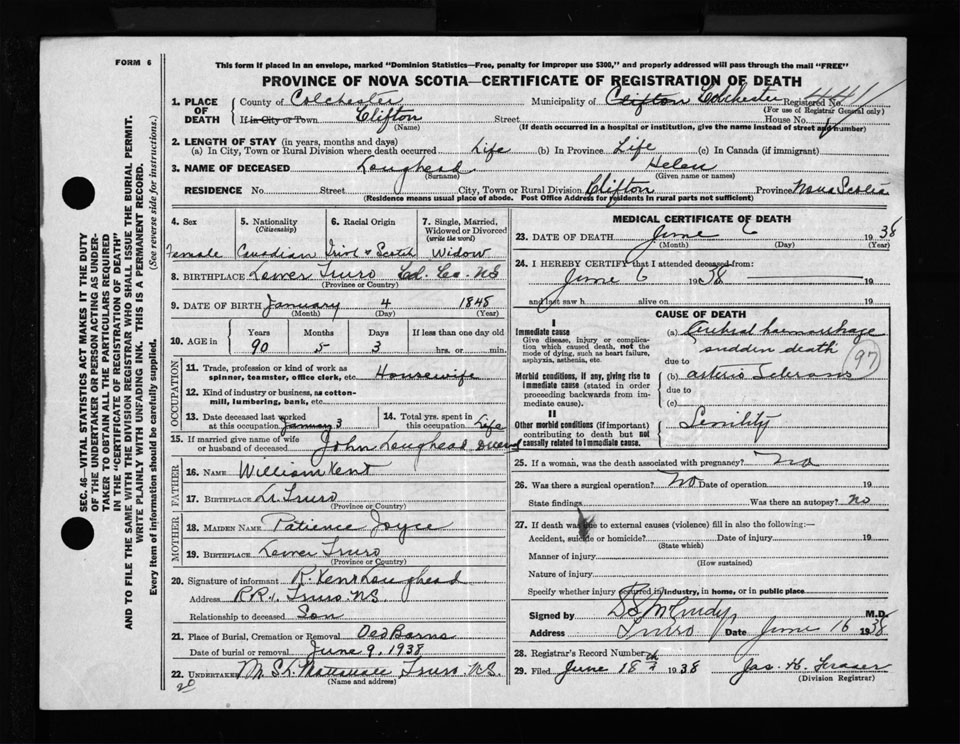 FORM 6
This form if placed in an envelope, marked "Dominion Statistics—Free, penalty for improper use $300," and properly addressed will pass through the mail "FREE"
PROVINCE OF NOVA SCOTIA—CERTIFICATE OF REGISTRATION OF DEATH
1. PLACE OF DEATH County of Colchester Municipality of Clifton Colchester Registered No.
(For use of Registrar General only)
If in City or Town Clifton Street House No.
(Name) (If death occurred in a hospital or institution, give the name instead of street and number)
2. LENGTH OF STAY (in years, months and days)
(a) In City, Town or Rural Division where death occurred Life (b) In Province Life (c) In Canada (if immigrant)
3. NAME OF DECEASED Loughead Helen
(Surname) (Given name or names)
RESIDENCE No. Street City, Town or Rural Division Clifton Province Nova Scotia
(Residence means usual place of abode. Post Office Address for residents in rural parts not sufficient)
4. Sex 5. Nationality (Citizenship) 6. Racial Origin 7. Single, Married, Widowed or Divorced (write the word)
Female Canadian Irish & Scotch Widow
8. BIRTHPLACE Lower Truro Col. Co. NS
(Province or Country)
9. DATE OF BIRTH January 4 1848
(Month) (Day) (Year)
10. AGE in Years Months Days If less than one day old
90 5 3 hrs. or min.
OCCUPATION
11. Trade, profession or kind of work as spinner, teamster, office clerk, etc. Housewife
12. Kind of industry or business, as cotton-mill, lumbering, bank, etc.
13. Date deceased last worked at this occupation January 3 14. Total yrs. spent in this occupation Life
15. If married give name of wife or husband of deceased John Loughead
FATHER
16. NAME William Kent
17. BIRTHPLACE Lr. Truro
(Province or Country)
MOTHER
18. MAIDEN NAME Patience Joyce
19. BIRTHPLACE Lower Truro
(Province or Country)
20. Signature of informant R. Kent Loughead
Address R.R.1. Truro. NS
Relationship to deceased Son
21. Place of Burial, Cremation or Removal Old Barns
Date of burial or removal June 9, 1938
22. UNDERTAKER Truro N.S.
(Name and address)
MEDICAL CERTIFICATE OF DEATH
23. DATE OF DEATH June 6 1938
(Month) (Day) (Year)
24. I HEREBY CERTIFY that I attended deceased from:
June 6 1938 19
and last saw h alive on 19
CAUSE OF DEATH
I
Immediate cause (a) Cerebral haemorrhage
Give disease, injury or complication which caused death, not the mode of dying, such as heart failure, asphyxia, asthenia, etc.
sudden death
due to
97
Morbid conditions, if any, giving rise to immediate cause (stated in order proceeding backwards from immediate cause).
(b) arterio Sclerosis
due to
(c)
II
Other morbid conditions (if important) contributing to death but not causally related to immediate cause.
Senility
25. If a woman, was the death associated with pregnancy? No
26. Was there a surgical operation? No Date of operation 19
State findings Was there an autopsy? No
27. If death was due to external causes (violence) fill in also the following:—
Accident, suicide or homicide? Date of injury 19
(State which)
Manner of injury
(How sustained)
Nature of injury
Specify whether injury occurred in industry, in home, or in public place
Signed by M.D.
Address Truro Date June 16 1938
28. Registrar's Record Number
29. Filed June 18th 1938 Jas. H. Fraser
(Division Registrar)
SEC. 46—VITAL STATISTICS ACT MAKES IT THE DUTY
OF THE UNDERTAKER OR PERSON ACTING AS UNDER-
TAKER TO OBTAIN ALL THE PARTICULARS REQUIRED
IN THE "CERTIFICATE OF REGISTRATION OF DEATH"
AND TO FILE THE SAME WITH THE DIVISION REGISTRAR WHO SHALL ISSUE THE BURIAL PERMIT.
WRITE PLAINLY WITH UNFADING INK. THIS IS A PERMANENT RECORD.
Every item of information should be carefully supplied. (See reverse side for instructions.)